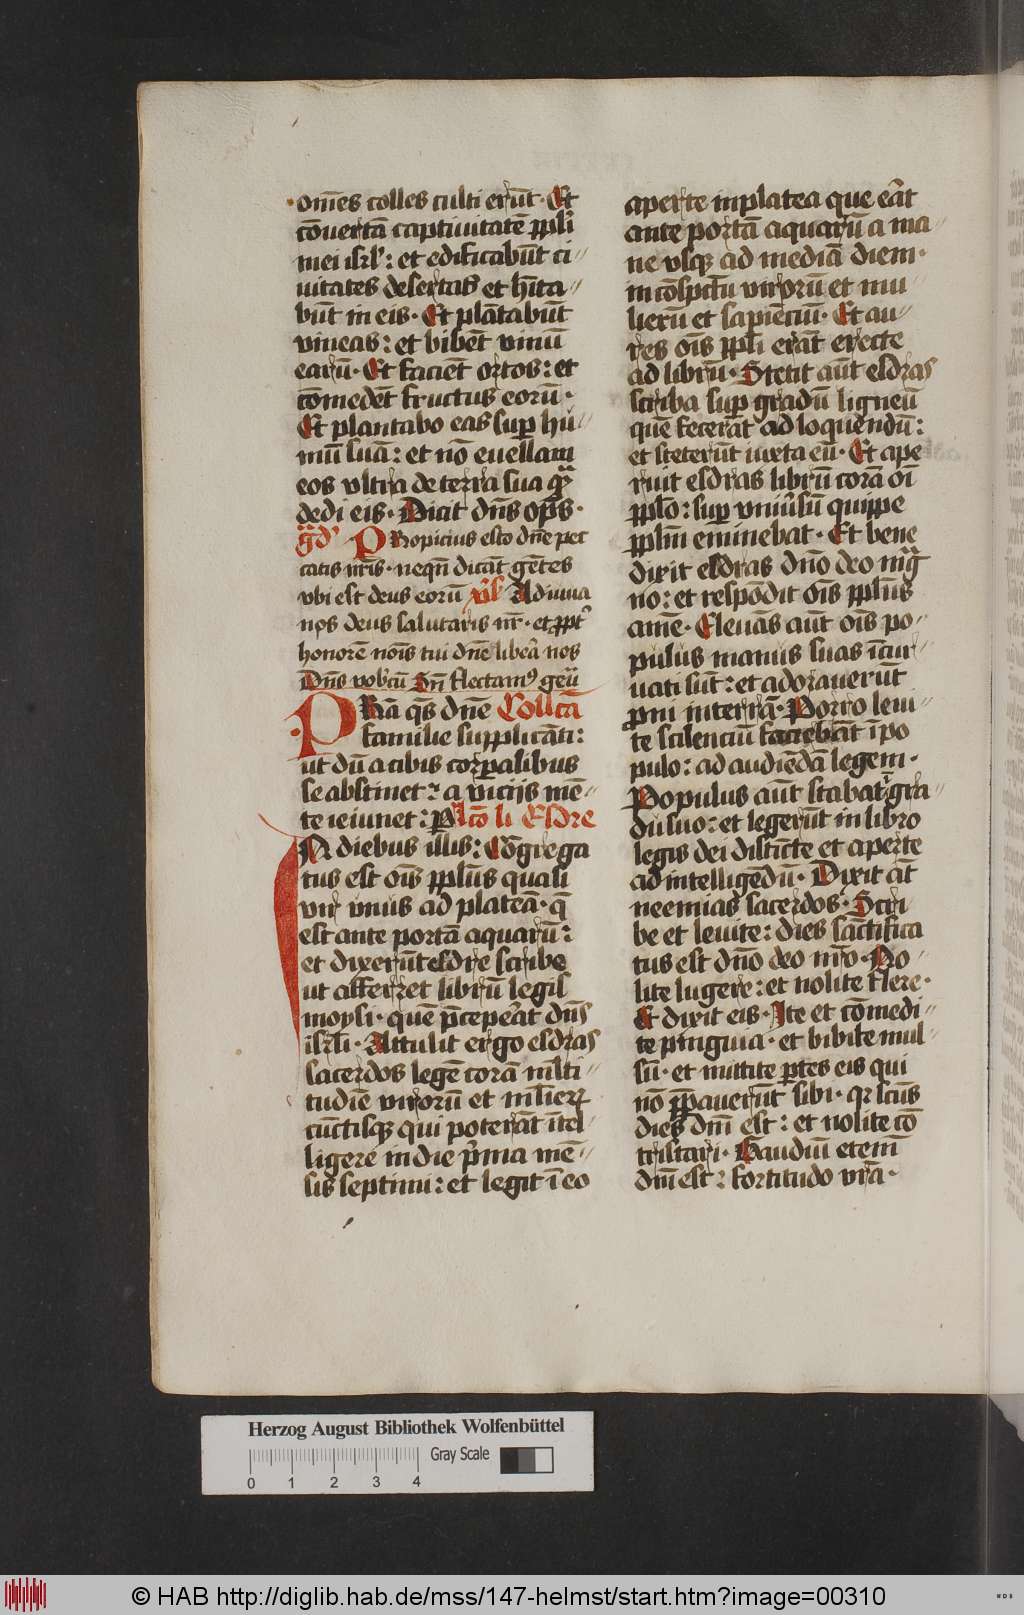 om̄es colles culti erūt· Et
cōuertā captiuitatē ppl̄i
mei isrl̓: et edificabūt ci
uitates desertas et hīta
būt in eis· Et plātabūt
vineas: et bibēt vinū
earū· Et faciēt ortos: et
cōmedēt fructus eorū·
Et plantabo eas suꝑ hu
mū suā: et nō euellam
eos vltra de terra sua qͣꝫ
dedi eis· Dicit dn̄s op̄s·
gͣd̓ PRopicius esto dn̄e pec
catis nr̄is· neqn̄ dicāt gētes
vbi est deus eorū v̓s Adiuua
nos deus salutaris nr̄· et ꝓpt̓
honorē nōis tui dn̄e libēa nos
Dn̄s vobcū Sn̄ flectam⁹ geū
PRa q̄s dn̄e Collcā
familie supplicāti:
ut dū a cibis corꝑalibus
se abstinet: a vicijs mē
te ieiunet: P Lc̄o li Esdre
IN diebus illis: Cōgrega
tus est ōis ppl̄us quasi
vir vnus ad plateā· q̄
est ante portā aquarū:
et dixerūt esdre scribe
ut afferret librū legis
moysi· quē p̄ceperat dn̄s
isrl̄i· Attulit ergo esdras
sacerdos legē corā ml̄ti
tudīe virorū et ml̄ierꝝ
cūctisqꝫ qui poterāt īntel
ligere in die p̓ma mē
sis septimi: et legit ī eo
aperte in platea que eāt
ante portā aquarū a ma
ne vsqꝫ ad mediā diem·
in cōspc̄tu virorū et mu
lierū et sapienciū· Et au
res ōis ppl̄i erāt erecte
ad librū· Stetit aūt esdras
scriba suꝑ gradū ligneū
quē fecerat ad loquendū:
et steterūt iuxta eū· Et ape
ruit esdras librū corā oī
ppl̄o: suꝑ vniūsū quippe
ppl̄m eminebat· Et bene
dixit esdras dn̄o deo mgͣ
no: et respōdit ōis ppl̄us
amē· Eleuās aūt ōis po
pulus manus suas īcur
uati sūt: et adorauerūt
proni in terrā· Porro leui
te scilenciū faciebāt ī po
pulo: ad audiēdā legem·
Populus aūt stabat ī gra
du suo: et legerūt in libro
legis dei distīcte et aperte
ad intelligēdū· Dixit āt
neemias sacerdos· Scri
be et leuite: dies sāctifica
tus est dn̄o deo nr̄o· No
lite lugere: et nolite flere·
Et dixit eis· Ite et cōmedi
te pinguia· et bibite mul
sū· et mittite ꝑtes eis qui
nō p̄ꝑauerūt sibi· qꝛ scūs
dies dn̄i est: et nolite cō
tristari· Gaudiū etenī
dn̄i est: fortitudo vrā·
Herzog August Bibliothek Wolfenbüttel
Gray Scale
0 1 2 3 4
© HAB http://diglib.hab.de/mss/147-helmst/start.htm?image=00310